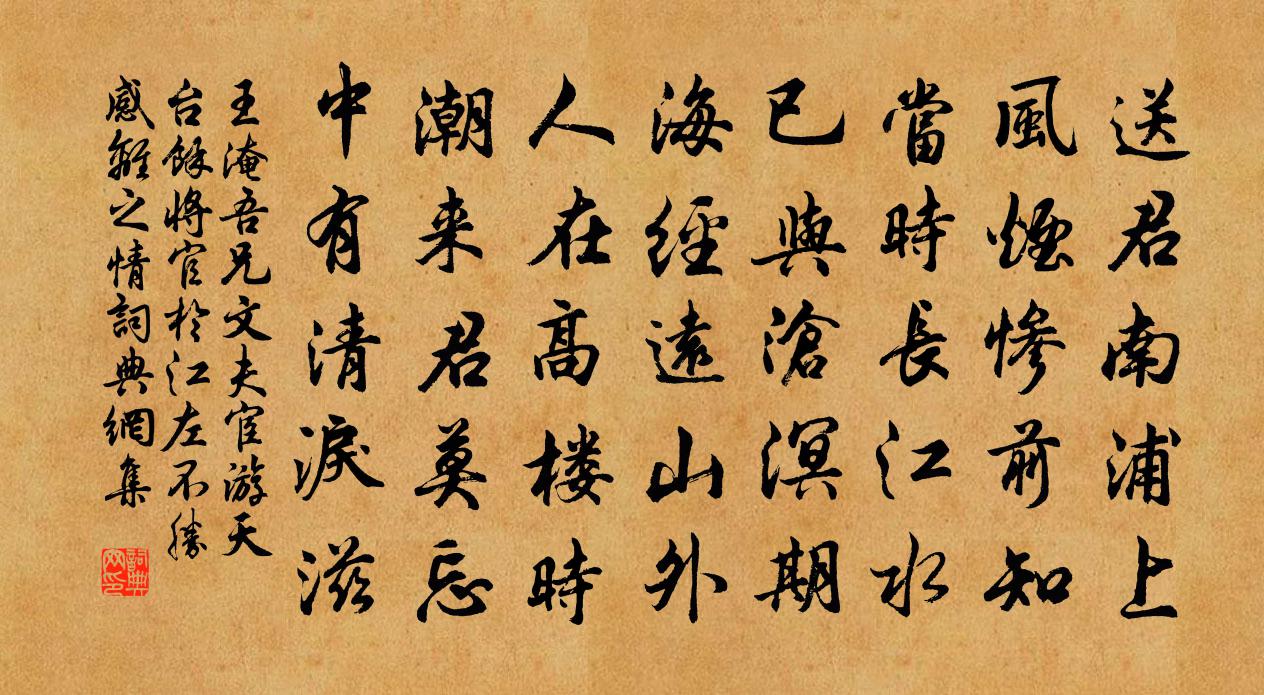 送君南浦上
風煙慘前知
當時長江水
已與滄溟期
海經遠山外
人在高樓時
潮来君莫忘
中有清淚滋
王淹吾兄文夫宦游天
台餘將官於江左不勝
感離之情詞典網集
詞典網印